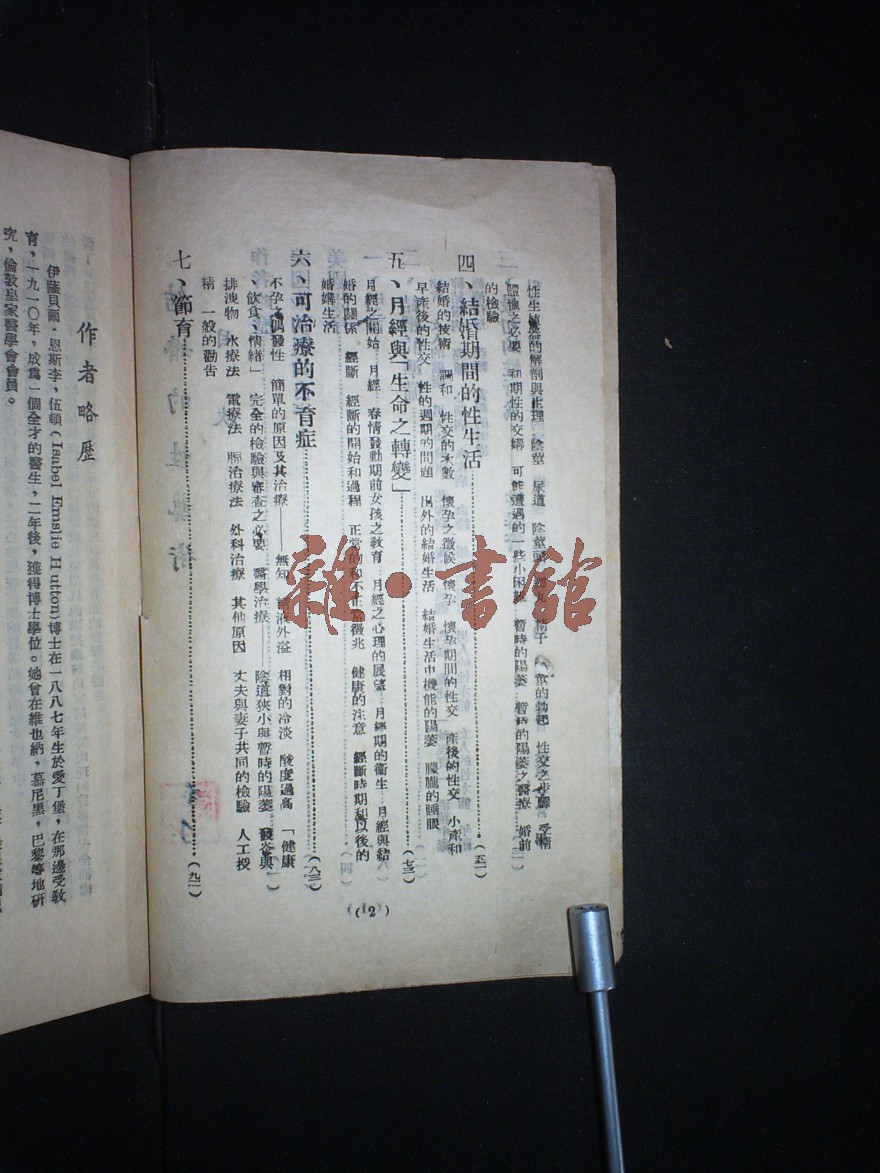 性生活的解剖與生理　陰莖　尿道　陰莖頭　睾丸　精子　陰莖的勃起　性交之步驟　受精
體憊之必要　初期性的交媾　可能遭遇的一些小困難　暫時的陽萎　暫時的陽萎之醫療　婚前
的檢驗
四、結婚期間的性生活……(五一)
結婚的技術　調和　性交的次數　懷孕之徵候　懷孕　懷孕期間的性交　產後的性交　小產和
早產後的性交　性的週期的問題　出外的結婚生活　結婚生活中機能的陽萎　朦朧的睡眼
五、月經與「生命之轉變」……(七三)
月經之開始　月經　春情發動期前女孩之教育　月經之心理的展望　月經期的衞生　月經與結
婚的關係　經斷　經斷的開始和過程　正常的和不正常徵兆　健康的注意　經斷時期和以後的
婚媾生活
六、可治療的不育症……(八三)
不孕　偶發性　簡單的原因及其治療——無知　精液外溢　相對的冷淡　酸度過高　「健康
、飲食、情緒」　完全的檢驗與審查之必要　醫學治療——陰道狹小與暫時的陽萎　發炎與
排洩物　水療法　電療法　腺治療法　外科治療　其他原因　丈夫與妻子共同的檢驗　人工授
精　一般的勸告
七、節育……(九二)
(2)
作者略歷
伊薩貝爾・恩斯李，伍頓(Isabel Emslie Hutton)博士在一八八七年生於愛丁堡，在那邊受教
育，一九一〇年，成爲一個全才的醫生，二年後，獲得博士學位。她曾在維也納，慕尼黑，巴黎等地研
究，倫敦皇家醫學會會員。
雜・書館